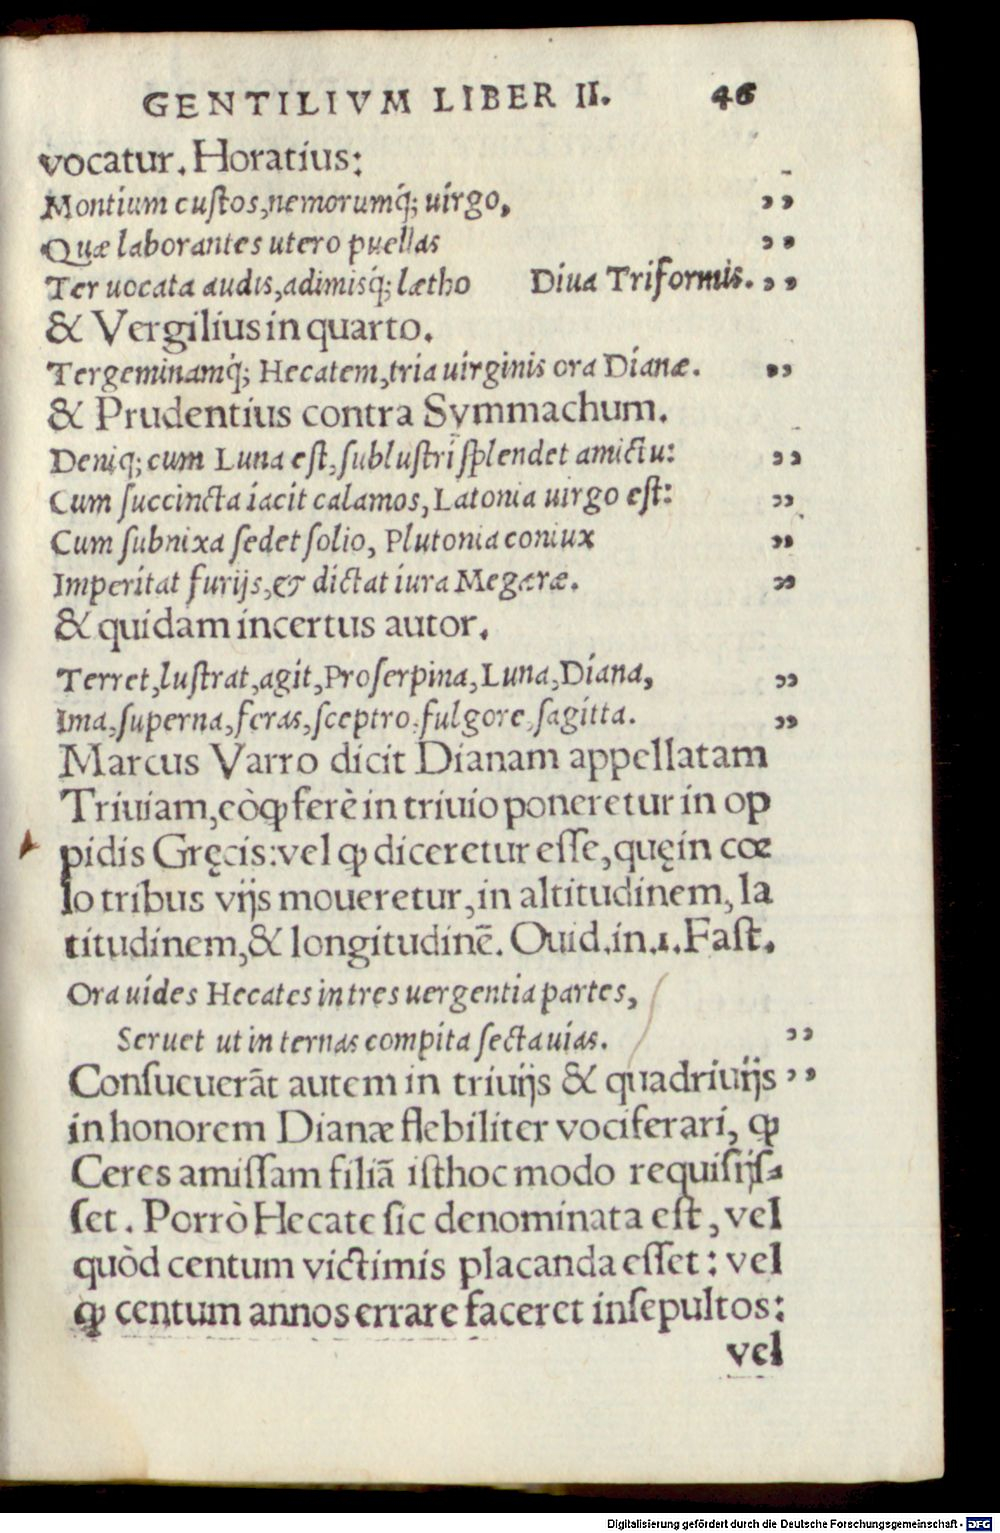 GENTILIVM LIBER II. 46
vocatur. Horatius:
Montium cuſtos,nemorumq́; uirgo, ,,
Quæ laborantes utero puellas ,,
Ter uocata audis,adimisq́; lætho Diua Triformis. ,,
& Vergilius in quarto.
Tergeminamq́; Hecatem,tria uirginis ora Dianæ. ,,
& Prudentius contra Symmachum.
Deniq; cum Luna eſt, ſubluſtri ſplendet amictu: ,,
Cum ſuccincta iacit calamos, Latonia uirgo eſt: ,,
Cum ſubnixa ſedet ſolio, Plutonia coniux ,,
Imperitat furijs,& dictat iura Megæræ. ,,
& quidam incertus autor.
Terret,luſtrat,agit,Proſerpina,Luna,Diana, ,,
Ima,ſuperna,feras,ſceptro,fulgore,ſagitta. ,,
Marcus Varro dicit Dianam appellatam
Triuiam,eòꝙ ferè in triuio poneretur in op
pidis Gręcis:vel ꝙ diceretur eſſe,quę in cœ
lo tribus vijs moueretur,in altitudinem, la
titudinem,& longitudinē. Ouid.in.1.Faſt.
Ora uides Hecates in tres uergentia partes,
Seruet ut in ternas compita ſecta uias. ,,
Conſueuerāt autem in triuijs & quadriuijs ,,
in honorem Dianæ flebiliter vociferari, ꝙ
Ceres amiſſam filiā iſthoc modo requiſijſ-
ſet. Porrò Hecate ſic denominata eſt, vel
quòd centum victimis placanda eſſet: vel
ꝙ centum annos errare faceret inſepultos:
vel
Digitalisierung gefördert durch die Deutsche Forschungsgemeinschaft - DFG